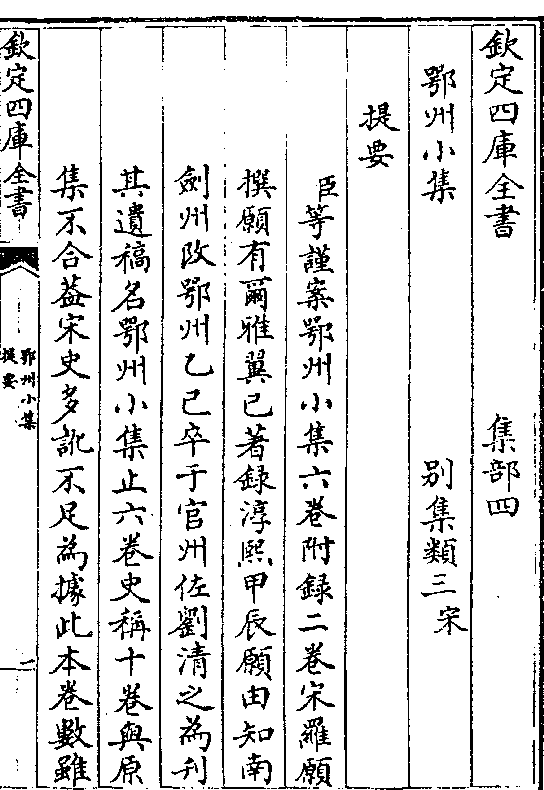 欽定四庫全書 集部四
鄂州小集 别集類三宋
提要
臣等謹案鄂州小集六卷附録二卷宋羅願
撰願有爾雅翼已著録淳熙甲辰願由知南
劍州改鄂州乙巳卒于官州佐劉清之為刋
其遺稿名鄂州小集止六卷史稱十卷與原
集不合葢宋史多訛不足為據此本卷數雖
欽定四庫全書
鄂州小集
提要
一